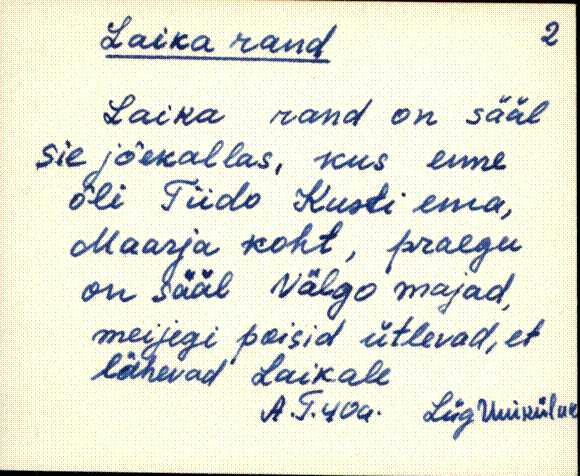 Laika rand 2
Laika rand on sääl
sie jõekallas, kus enne
õli Tiido Kusti ema,
Maarja koht, praegu
on sääl Välgo majad,
meijegi poisid ütlevad, et
lähevad Laikale
A.T. 40a. Lüg Uniküla